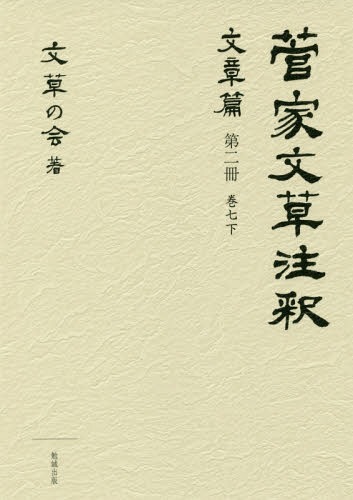 菅家文草注釈
文章篇 第二冊 巻七下
文草の会 著
勉誠出版